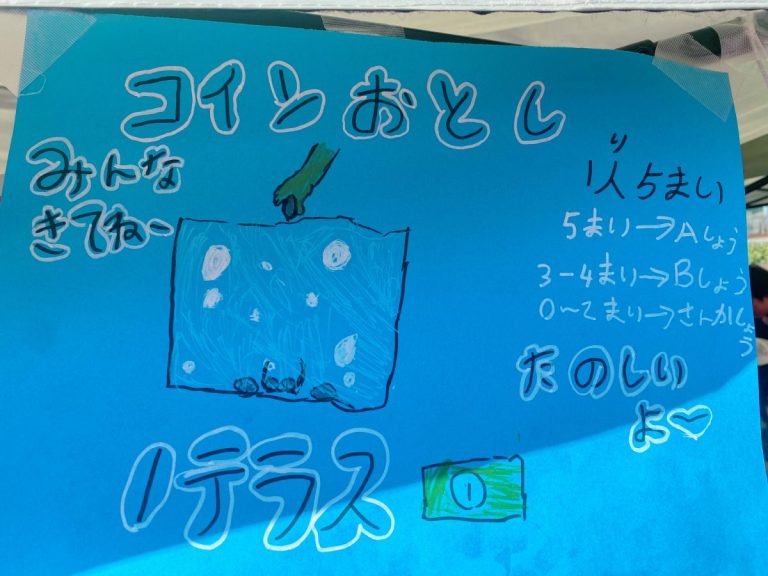 コインおとし
みんな
きてねー
1人り5まい
5まい→Aしょう
3-4まい→Bしょう
0〜2まい→さんかしょう
たのしい
よ♡
1テラス
1